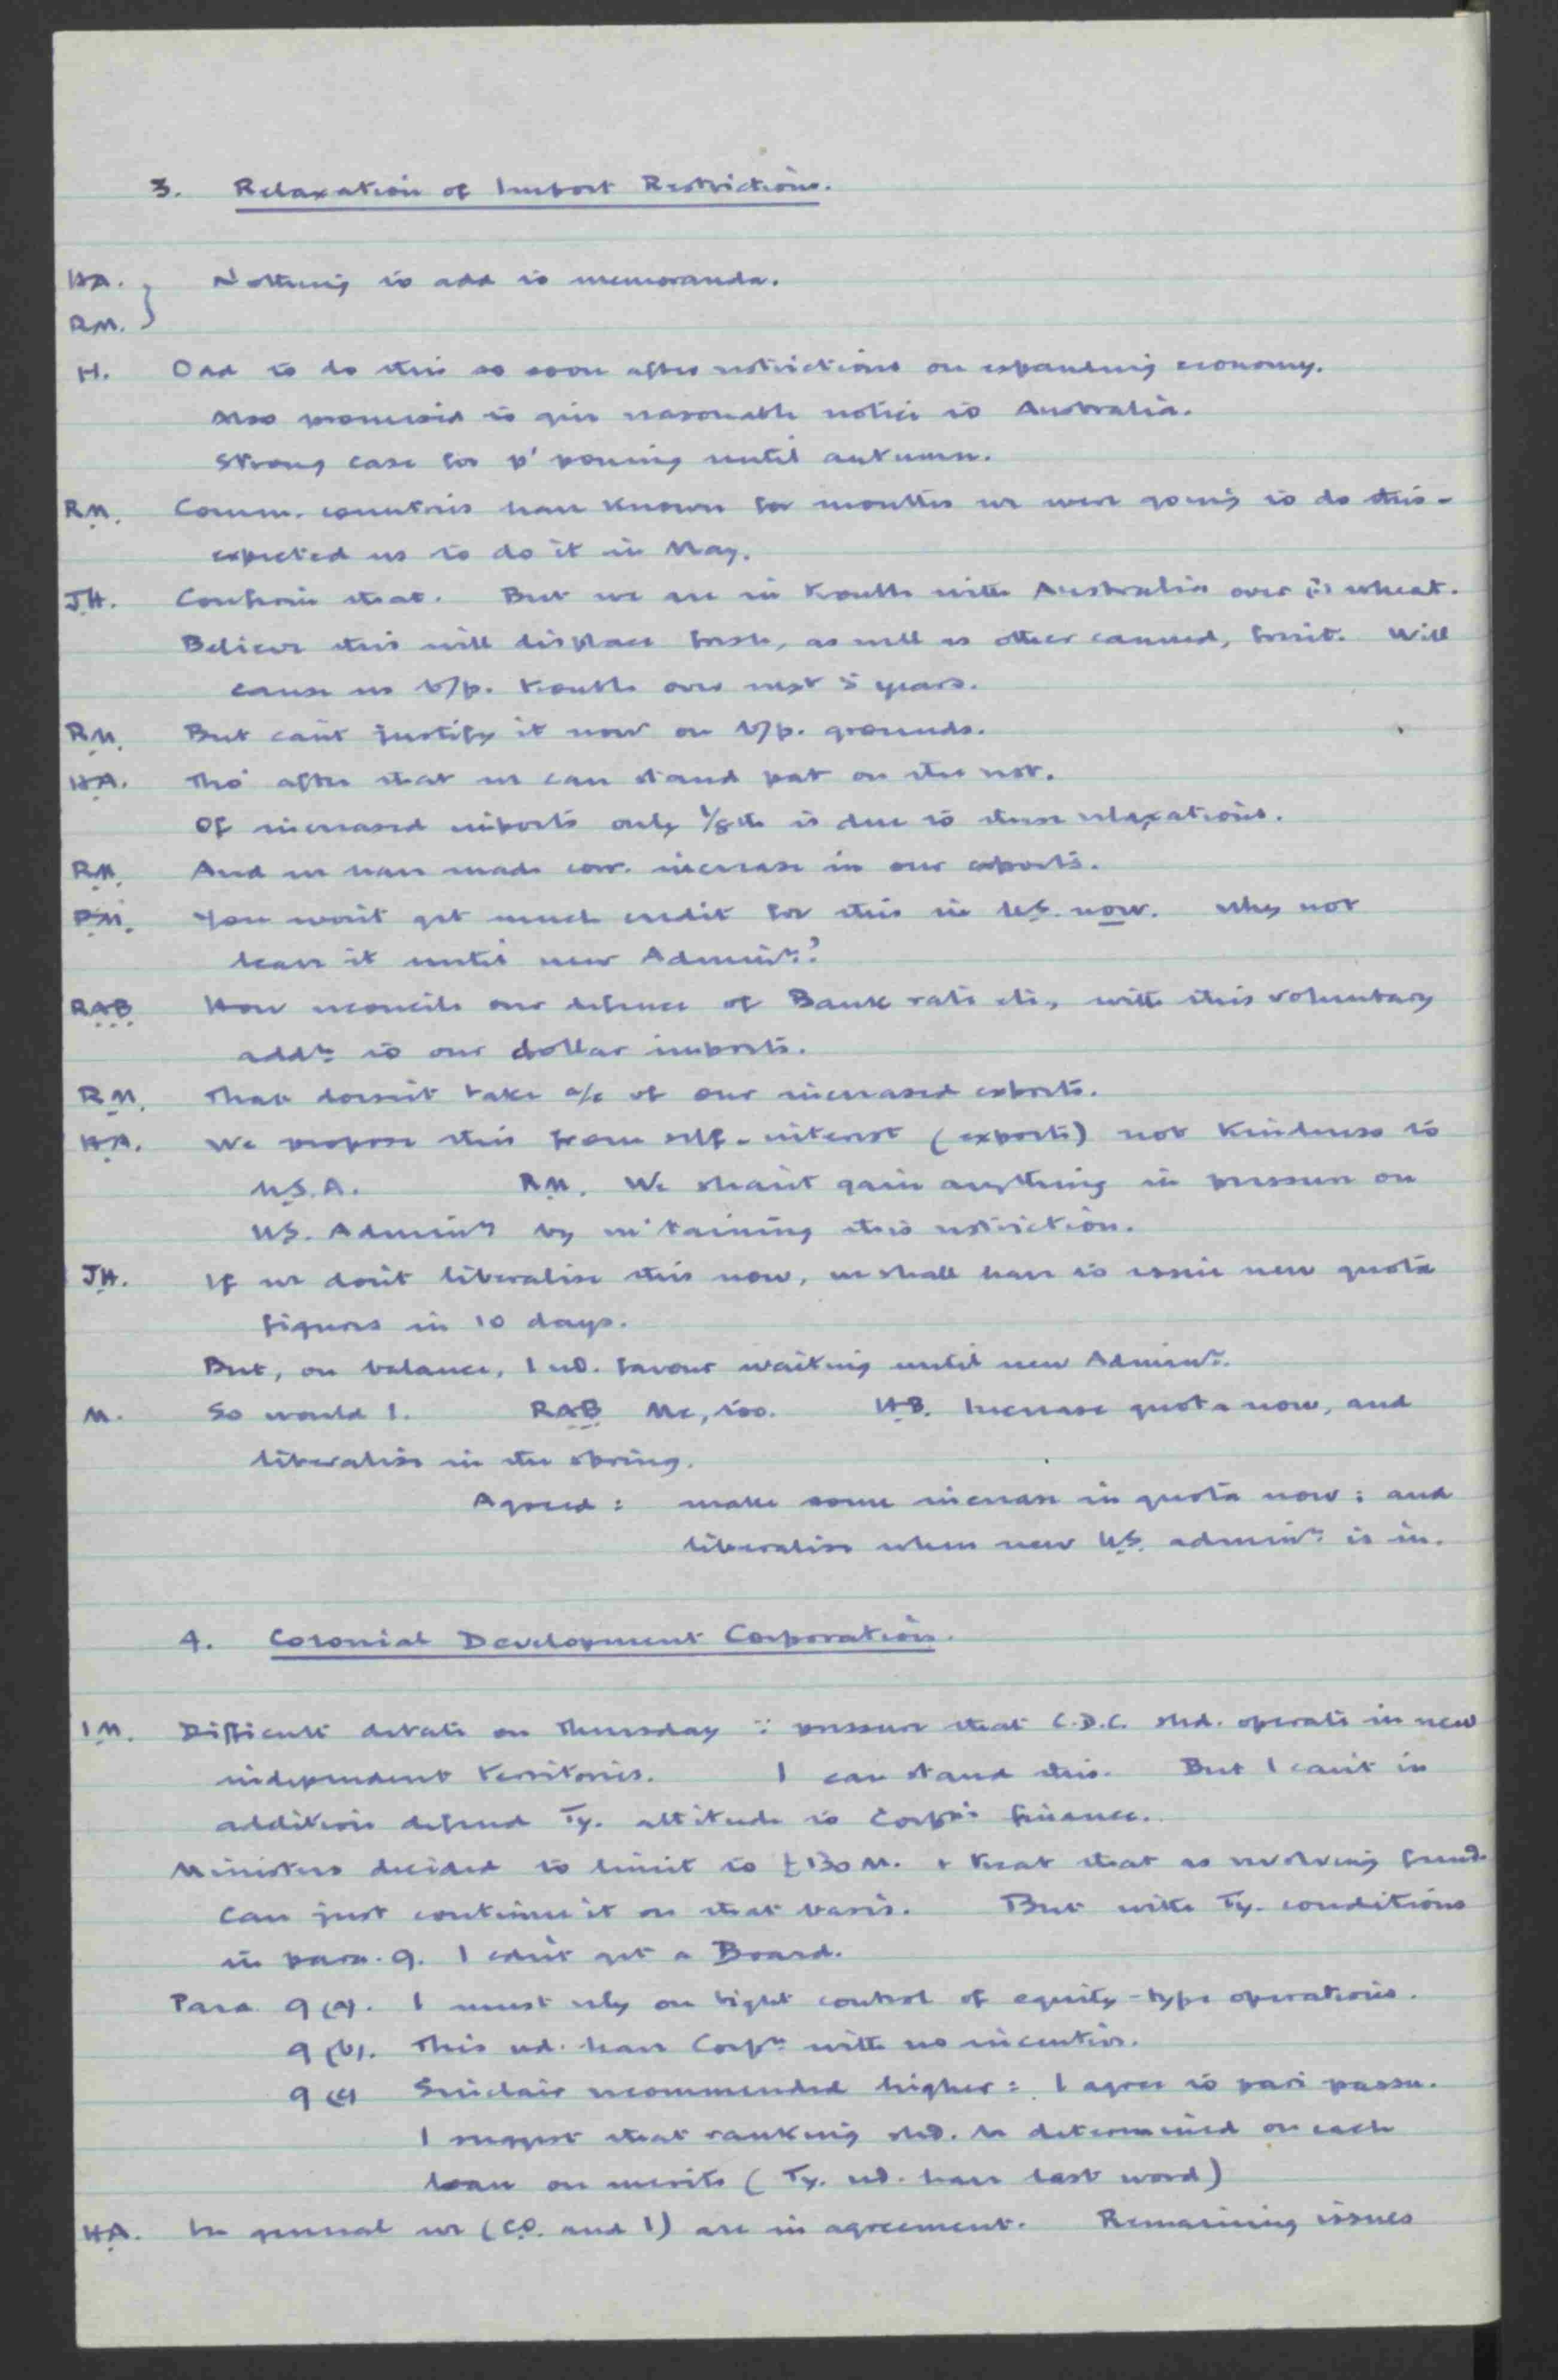 3. Relaxation of Import Restrictions.
HA. } Nothing to add to memoranda.
RM.
H. Odd to do this so soon after restrictions on expanding economy.
Also promised to give reasonable notice to Australia.
Strong case for p'poning until autumn.
RM. Comm. countries have known for months we were going to do this -
expected us to do it in May.
JH. Confirm that. But we are in trouble with Australia over wheat.
Believe this will displace fresh, as well as other canned, fruit. Will
cause us b/p. trouble over next 5 years.
RM. But can't justify it now on b/p. grounds.
HA. Tho' after that we can stand pat on the rest.
Of increased imports only 1/8th is due to these relaxations.
RM. And we have made corr. increase in our exports.
PM. You won't get much credit for this in U.S. now. Why not
leave it until new Adminn.?
RAB How reconcile our defence of Bank rate etc., with this voluntary
addn to our dollar imports.
RM. That doesn't take a/c of our increased exports.
HA. We propose this from self-interest (exports) not kindness to
U.S.A. RM. We shan't gain anything in pressure on
U.S. Adminn by m'taining this restriction.
JH. If we don't liberalise this now, we shall have to issue new quota
figures in 10 days.
But, on balance, I wd. favour waiting until new Adminn.
M. So would I. RAB Me, too. HB. Increase quota now, and
liberalise in the spring.
Agreed: make some increase in quota now: and
liberalise when new U.S. adminn is in.
4. Colonial Development Corporation.
IM. Difficult debate on Thursday : pressure that C.D.C. shd. operate in new
independent territories. I can stand this. But I can't in
addition defend Ty. attitude to Corpn's finance.
Ministers decided to limit to £130 M. + treat that as revolving fund.
Can just continue it on that basis. But with Ty. conditions
in para. 9. I can't get a Board.
Para 9(a). I must rely on tight control of equity-type operations.
9(b). This wd. leave Corpn with no incentive.
9(c) Sinclair recommended higher: I agree to pari passu.
I suggest that ranking shd. be determined on each
loan on merits (Ty. wd. have last word)
HA. In general we (C.O. and I) are in agreement. Remaining issues